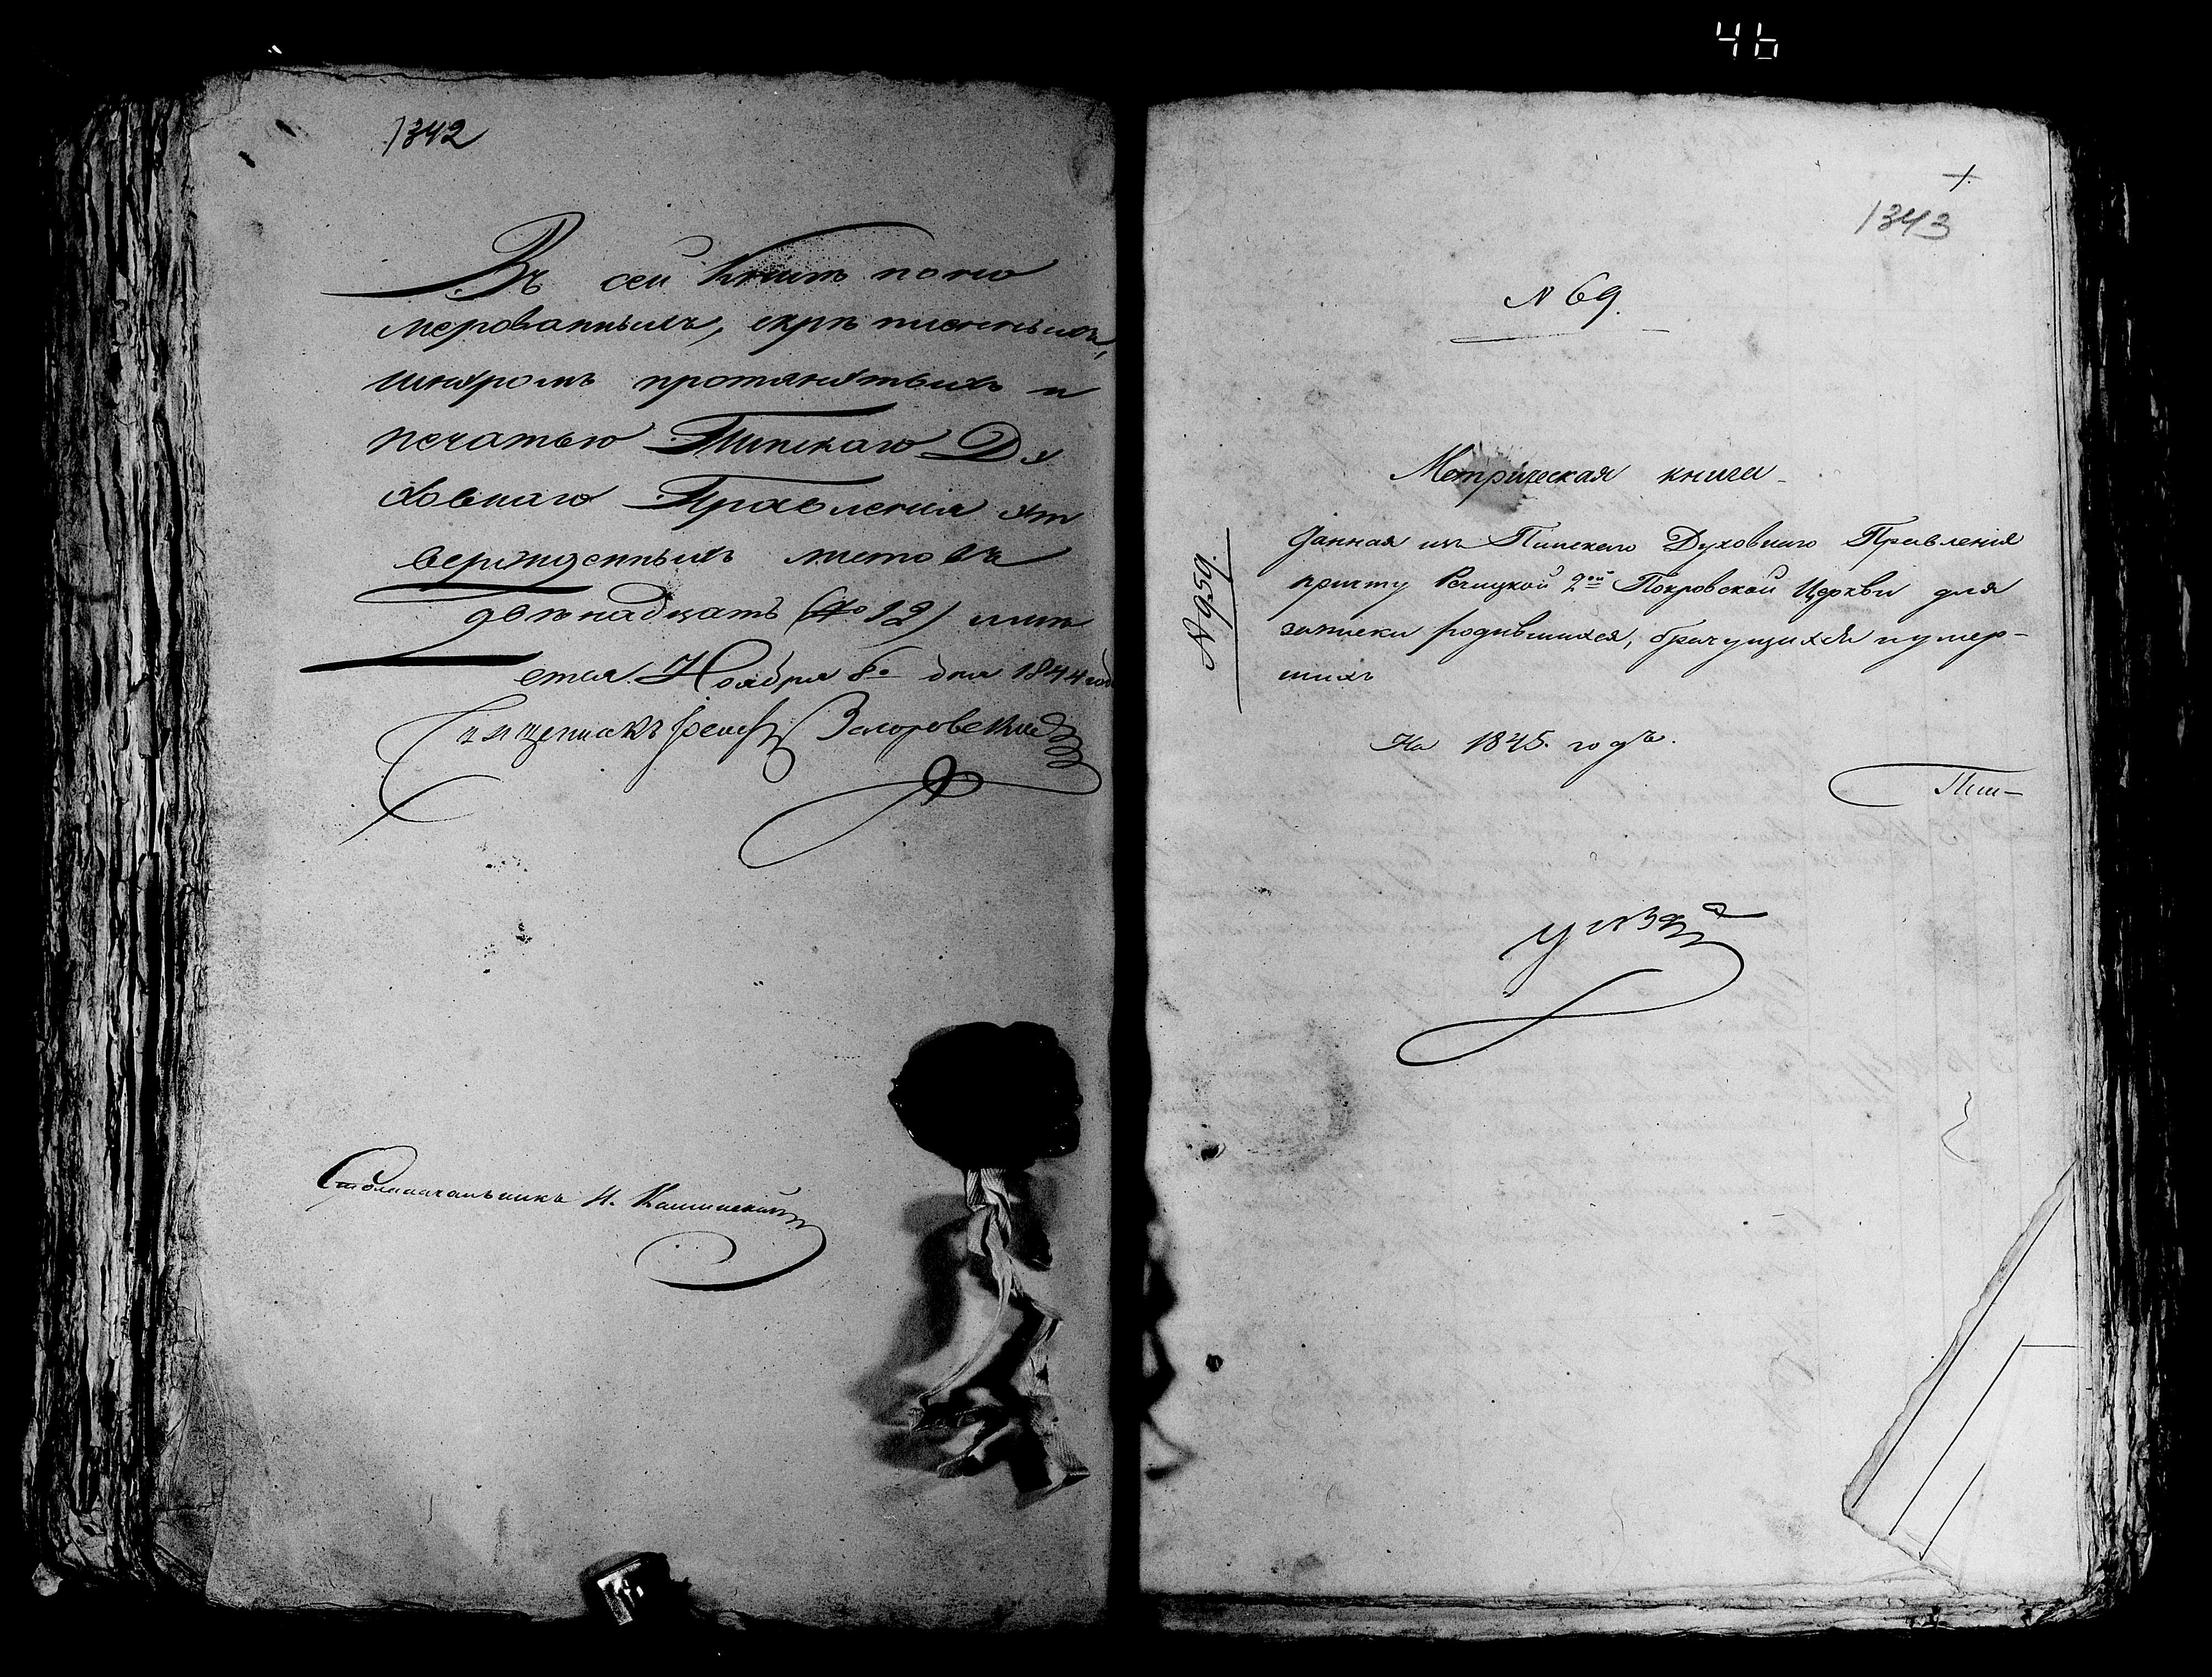 46
1342
Въ сей Книгѣ пону
мерованныхъ, скрѣпленныхъ,
шнуромъ протянутыхъ и
печатью Пинскаго Ду
ховнаго Правленія ут
вержденныхъ листовъ
двѣнадцать (12) имѣ
ется. Ноября 8го дня 1844 года
Священникъ
Столоначальникъ И.
1343
N 69.
N 659.
Метрическая книга
данная изъ Пинскаго Духовнаго Правленія
причту Речицкой 2ой Покровской Церкви для
записки родившихся, брачущихся и умер-
шихъ
На 1845. годъ.
Пин-
уѣзда